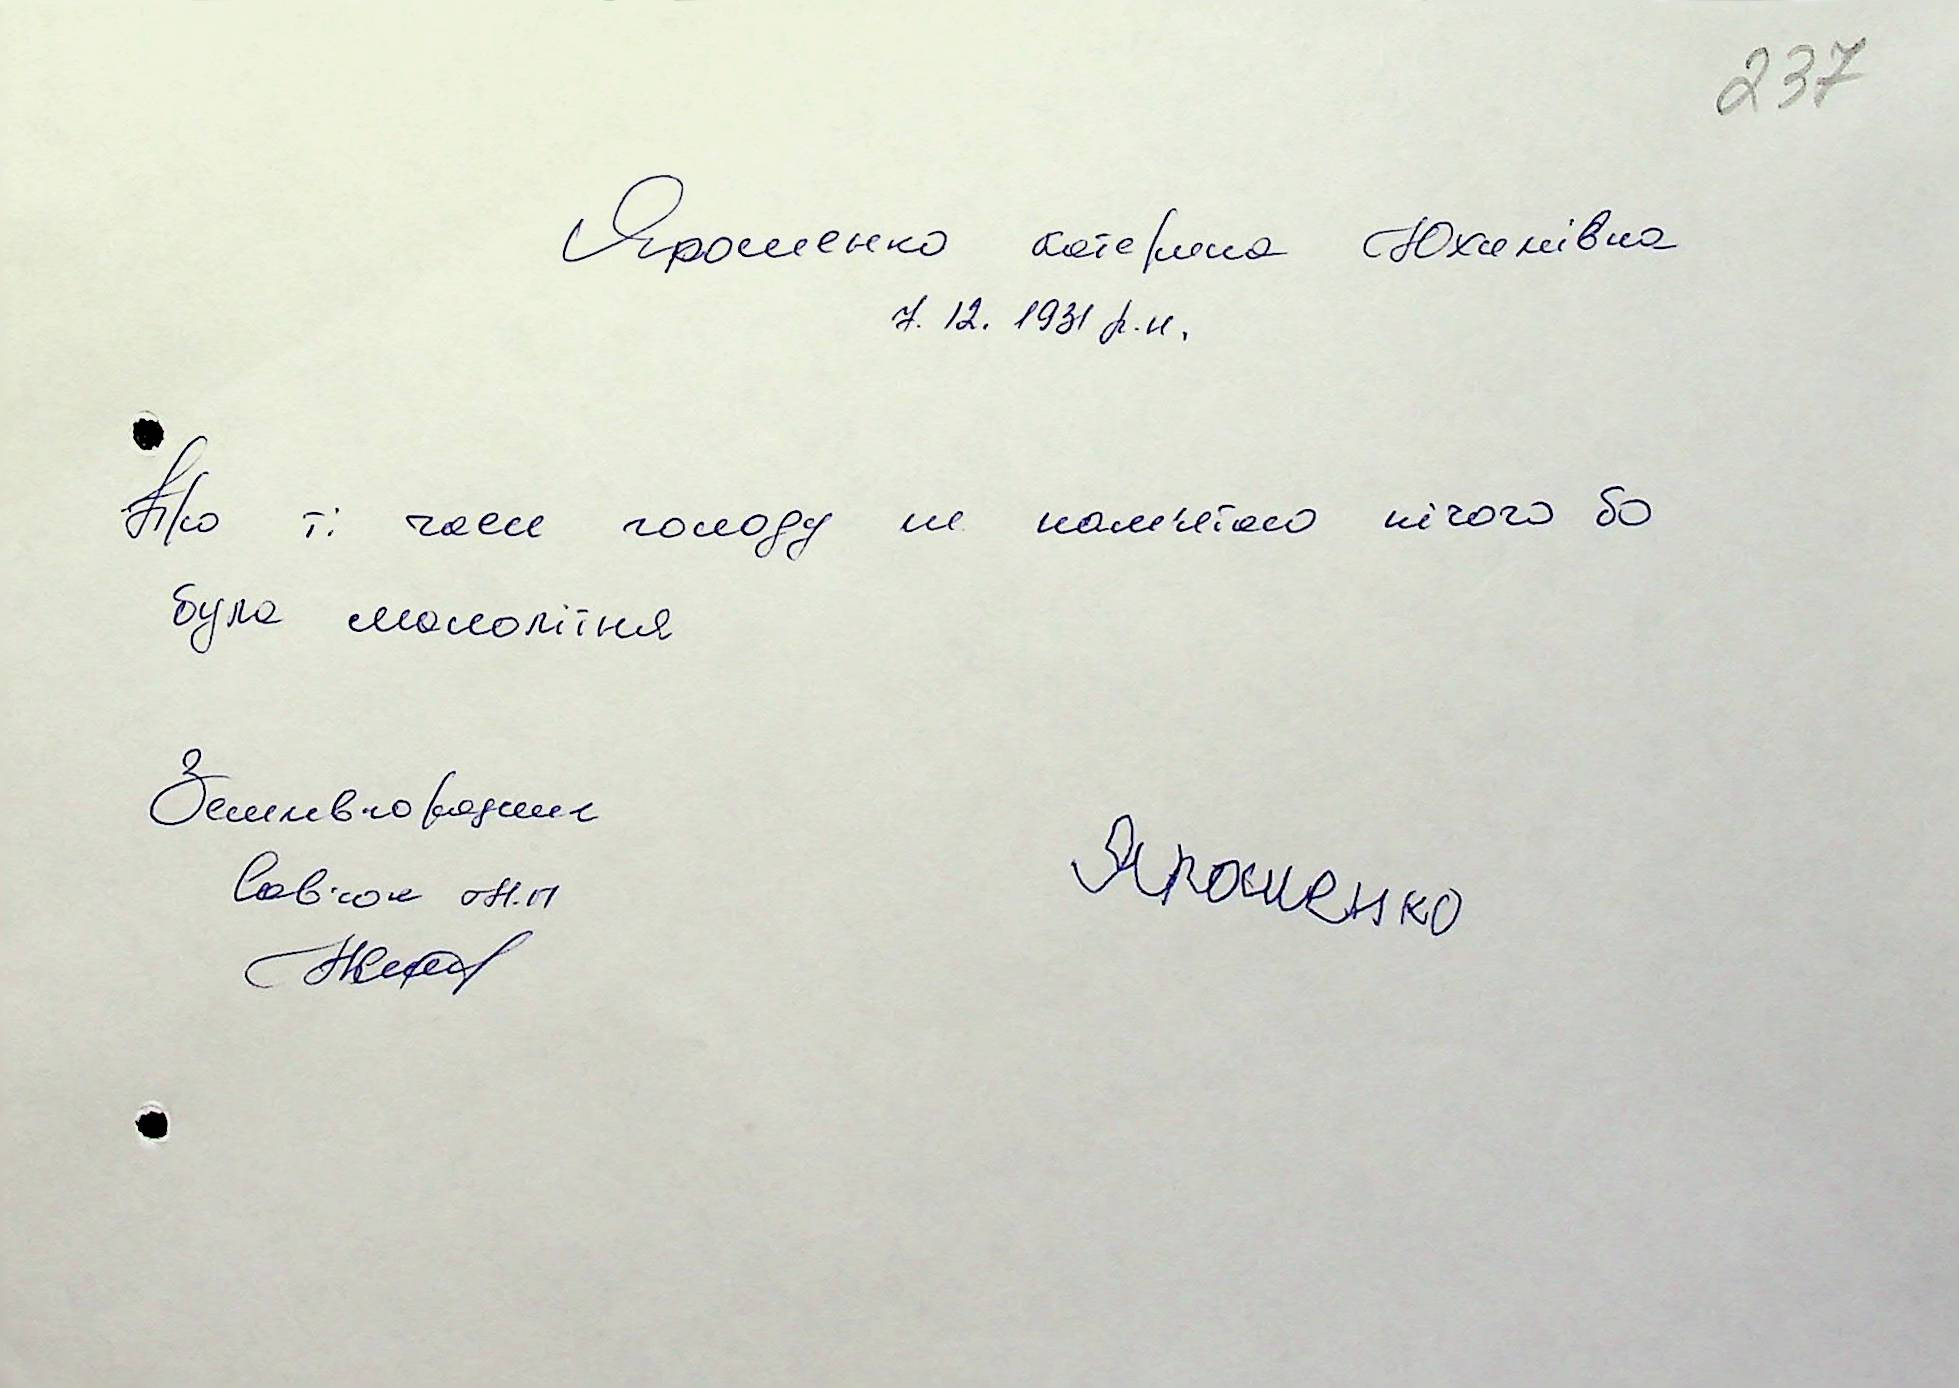 237
Ярошенко Катерина Юхимівна
7. 12. 1931 р.н.
Про ті часи голоду не пам'ятаю нічого бо
була малолітня
Землевпорядник
Савчук Н.П
Ярошенко